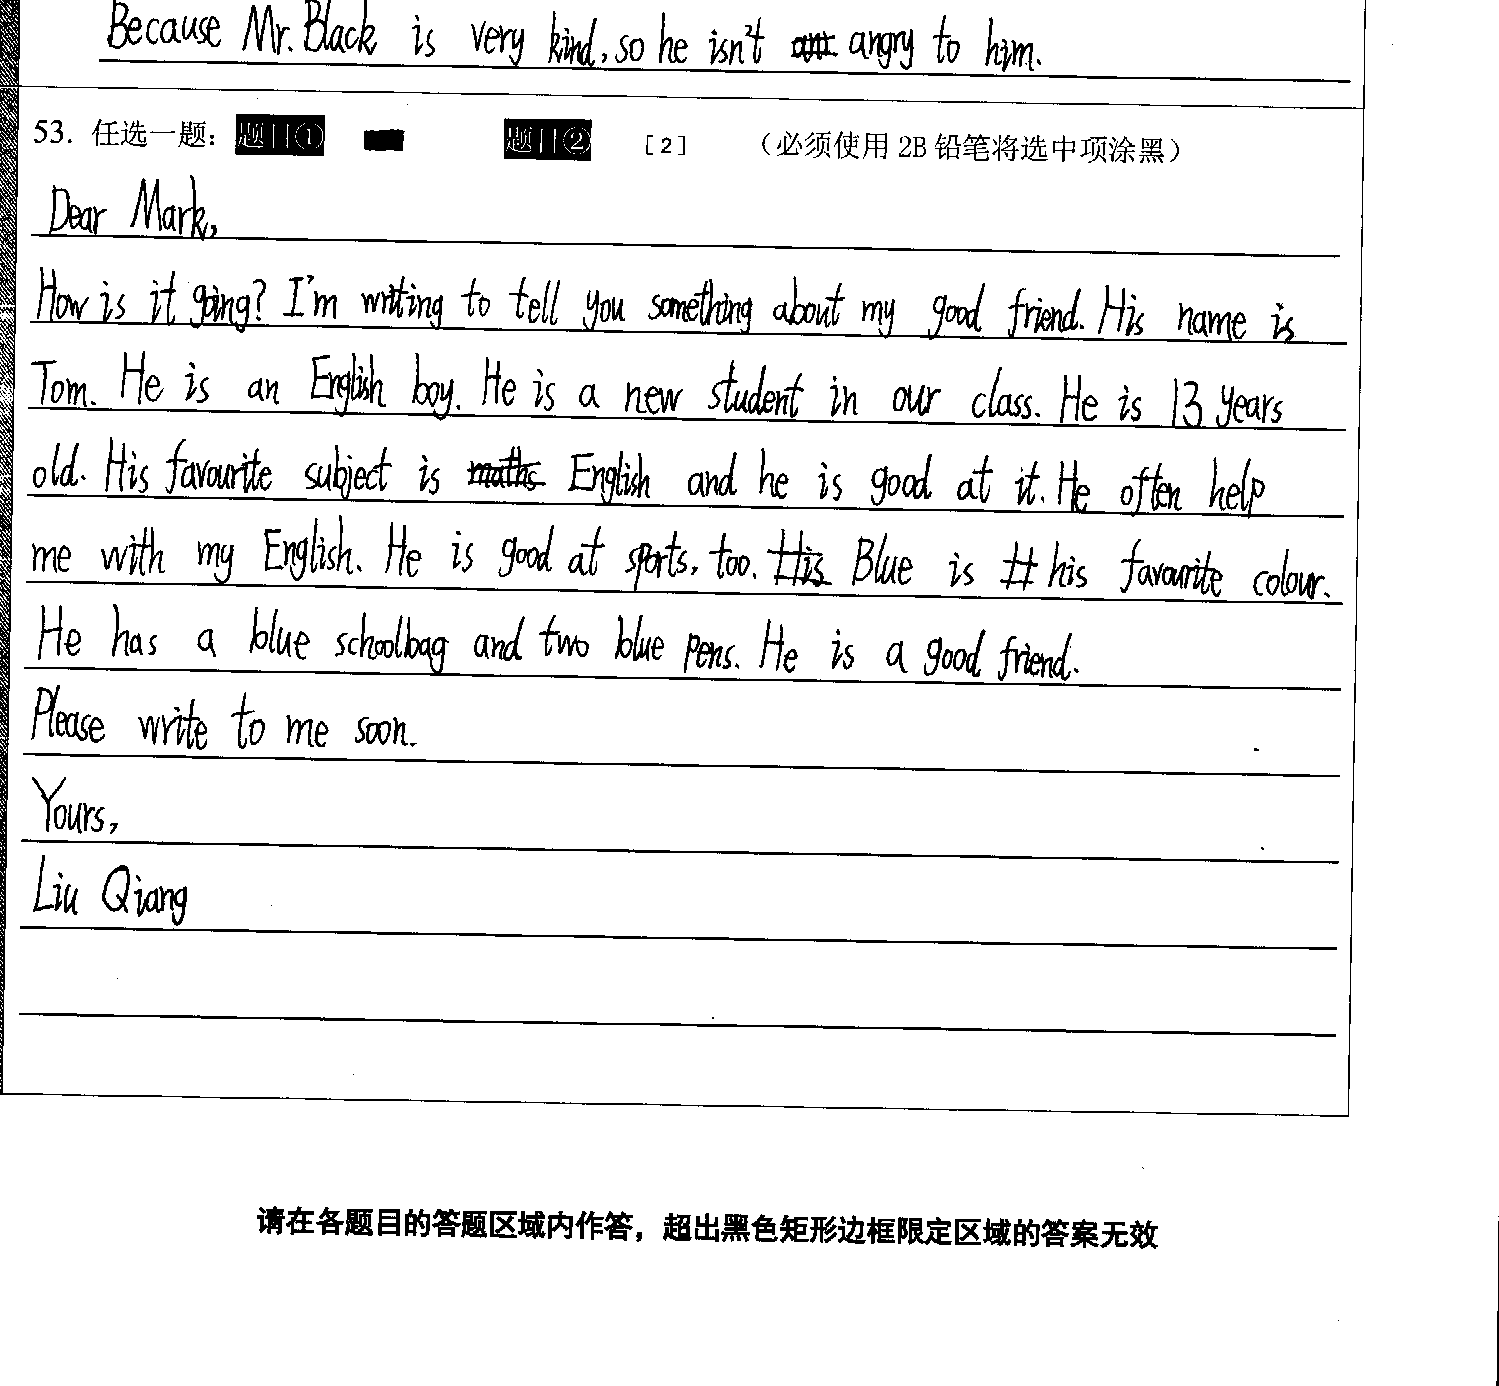 Because Mr. Black is very kind, so he isn't angry to him.
53. 任选一题： 题目① 题目② [2] （必须使用 2B 铅笔将选中项涂黑）
Dear Mark,
How is it going? I'm writing to tell you something about my good friend. His name is
Tom. He is an English boy. He is a new student in our class. He is 13 years
old. His favourite subject is maths English and he is good at it. He often help
me with my English. He is good at sports, too. His Blue is his favourite colour.
He has a blue schoolbag and two blue pens. He is a good friend.
Please write to me soon.
Yours,
Liu Qiang
请在各题目的答题区域内作答，超出黑色矩形边框限定区域的答案无效